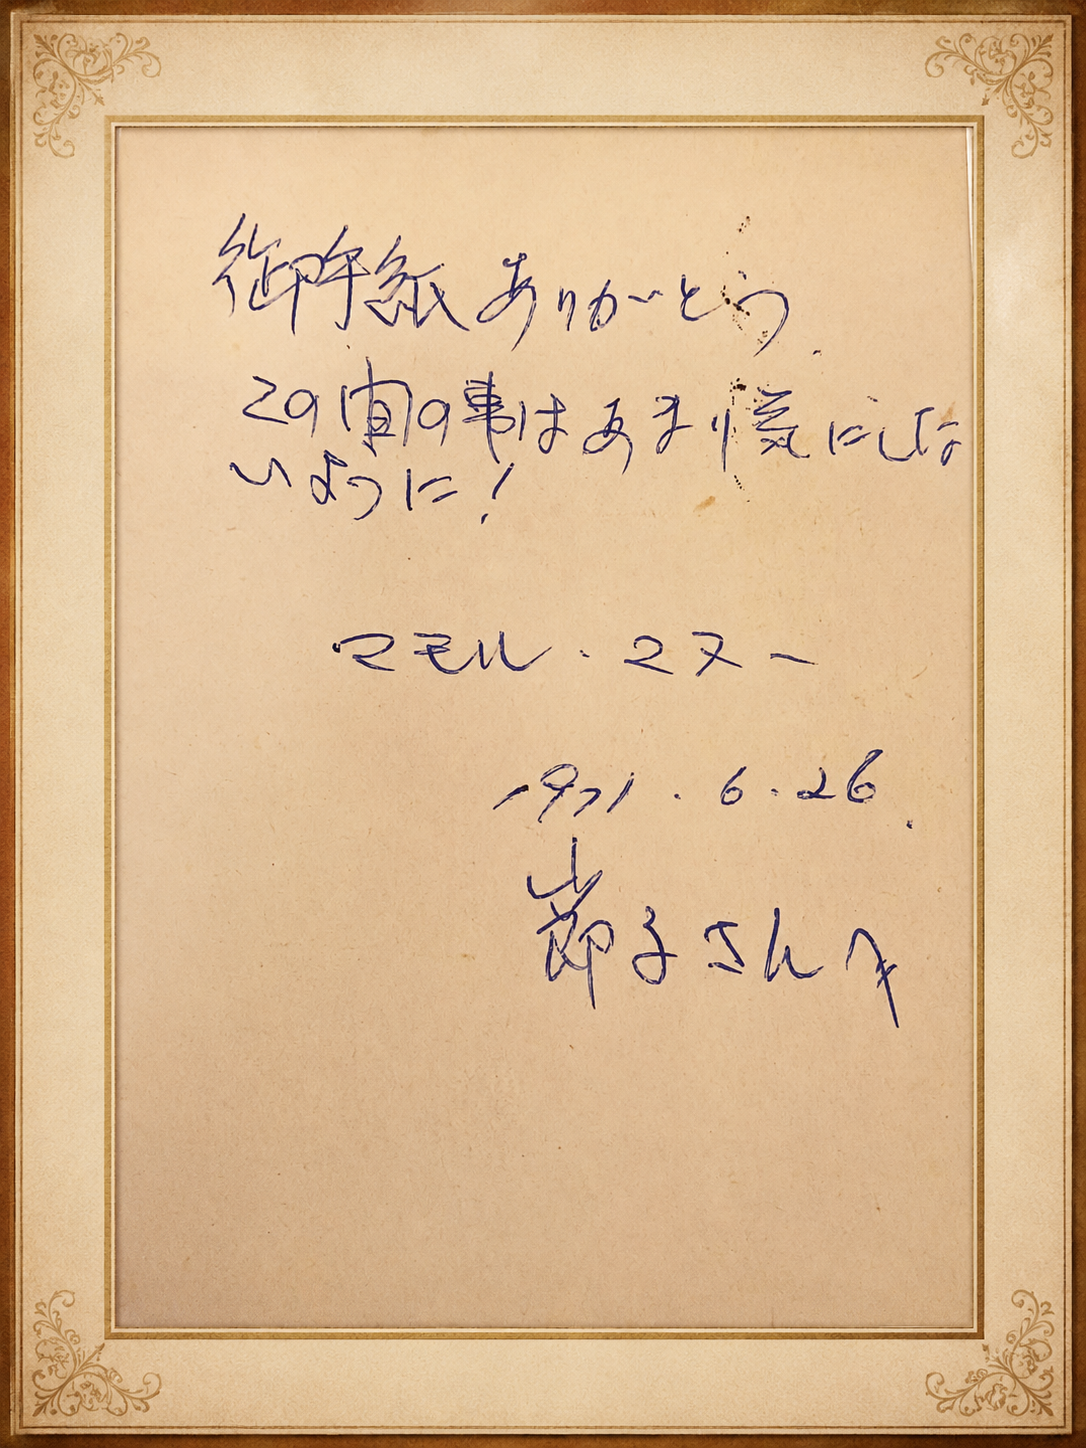 御手紙ありがとう
この間の事はあまり気にしな
いように!
マモル・マヌー
1971.6.26.
節子さん江